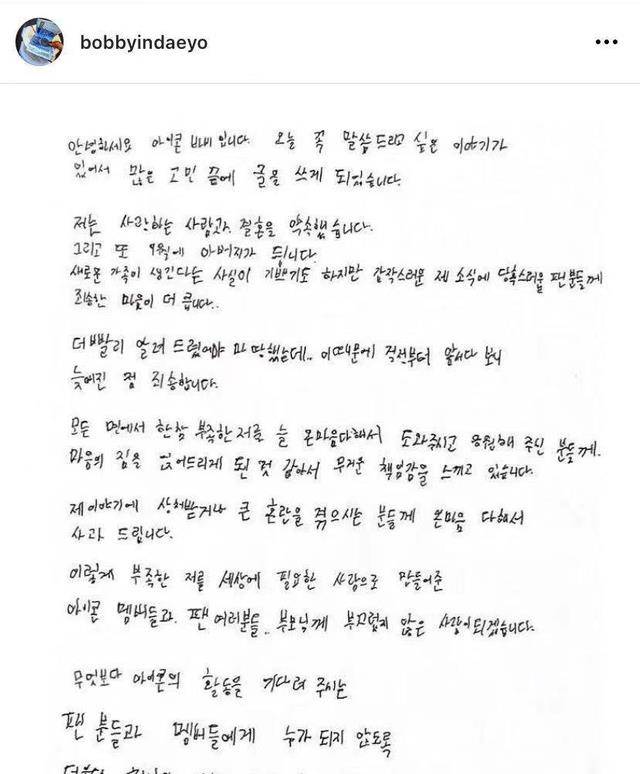 bobbyindaeyo
안녕하세요 아이콘 바비 입니다. 오늘 꼭 말씀 드리고 싶은 이야기가
있어서 많은 고민 끝에 글을 쓰게 되었습니다.
저는 사랑하는 사람과 결혼을 약속했습니다.
그리고 또 9월에 아버지가 됩니다.
새로운 가족이 생긴다는 사실이 기쁘기도 하지만 갑작스러운 제 소식에 당혹스러울 팬분들께
죄송한 마음이 더 큽니다..
더 빨리 알려 드렸어야 마땅했는데.. 이 때문에 걱정부터 앞서다 보니
늦어진 점 죄송합니다.
모든 면에서 한참 부족한 저를 늘 온마음다해서 도와주시고 응원해 주신 분들께.
마음의 짐을 얹어드리게 된 것 같아서 무거운 책임감을 느끼고 있습니다.
제 이야기에 상처받거나 큰 혼란을 겪으시는 분들께 온마음 다해서
사과 드립니다.
이렇게 부족한 저를 세상에 필요한 사람으로 만들어준
아이콘 멤버들과 팬 여러분들.. 부모님께 부끄럽지 않은 사람이 되겠습니다.
무엇보다 아이콘의 활동을 기다려 주시는
팬 분들과 멤버들에게 누가 되지 않도록